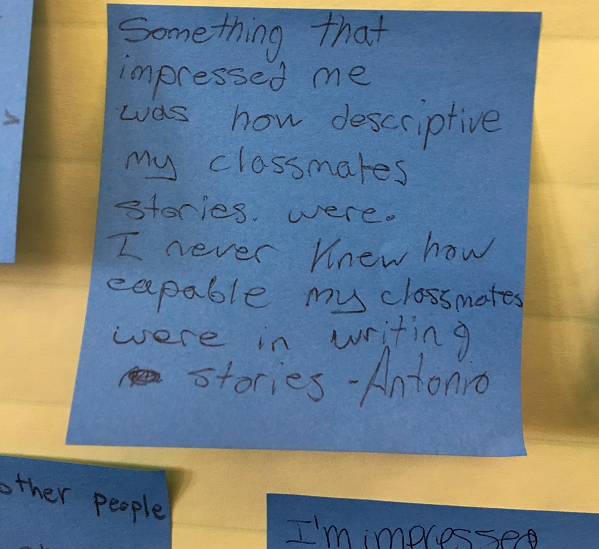 Something that
impressed me
was how descriptive
my classmates
stories. were.
I never knew how
capable my classmates
were in writing
stories -Antonio
other people
I'm impressed